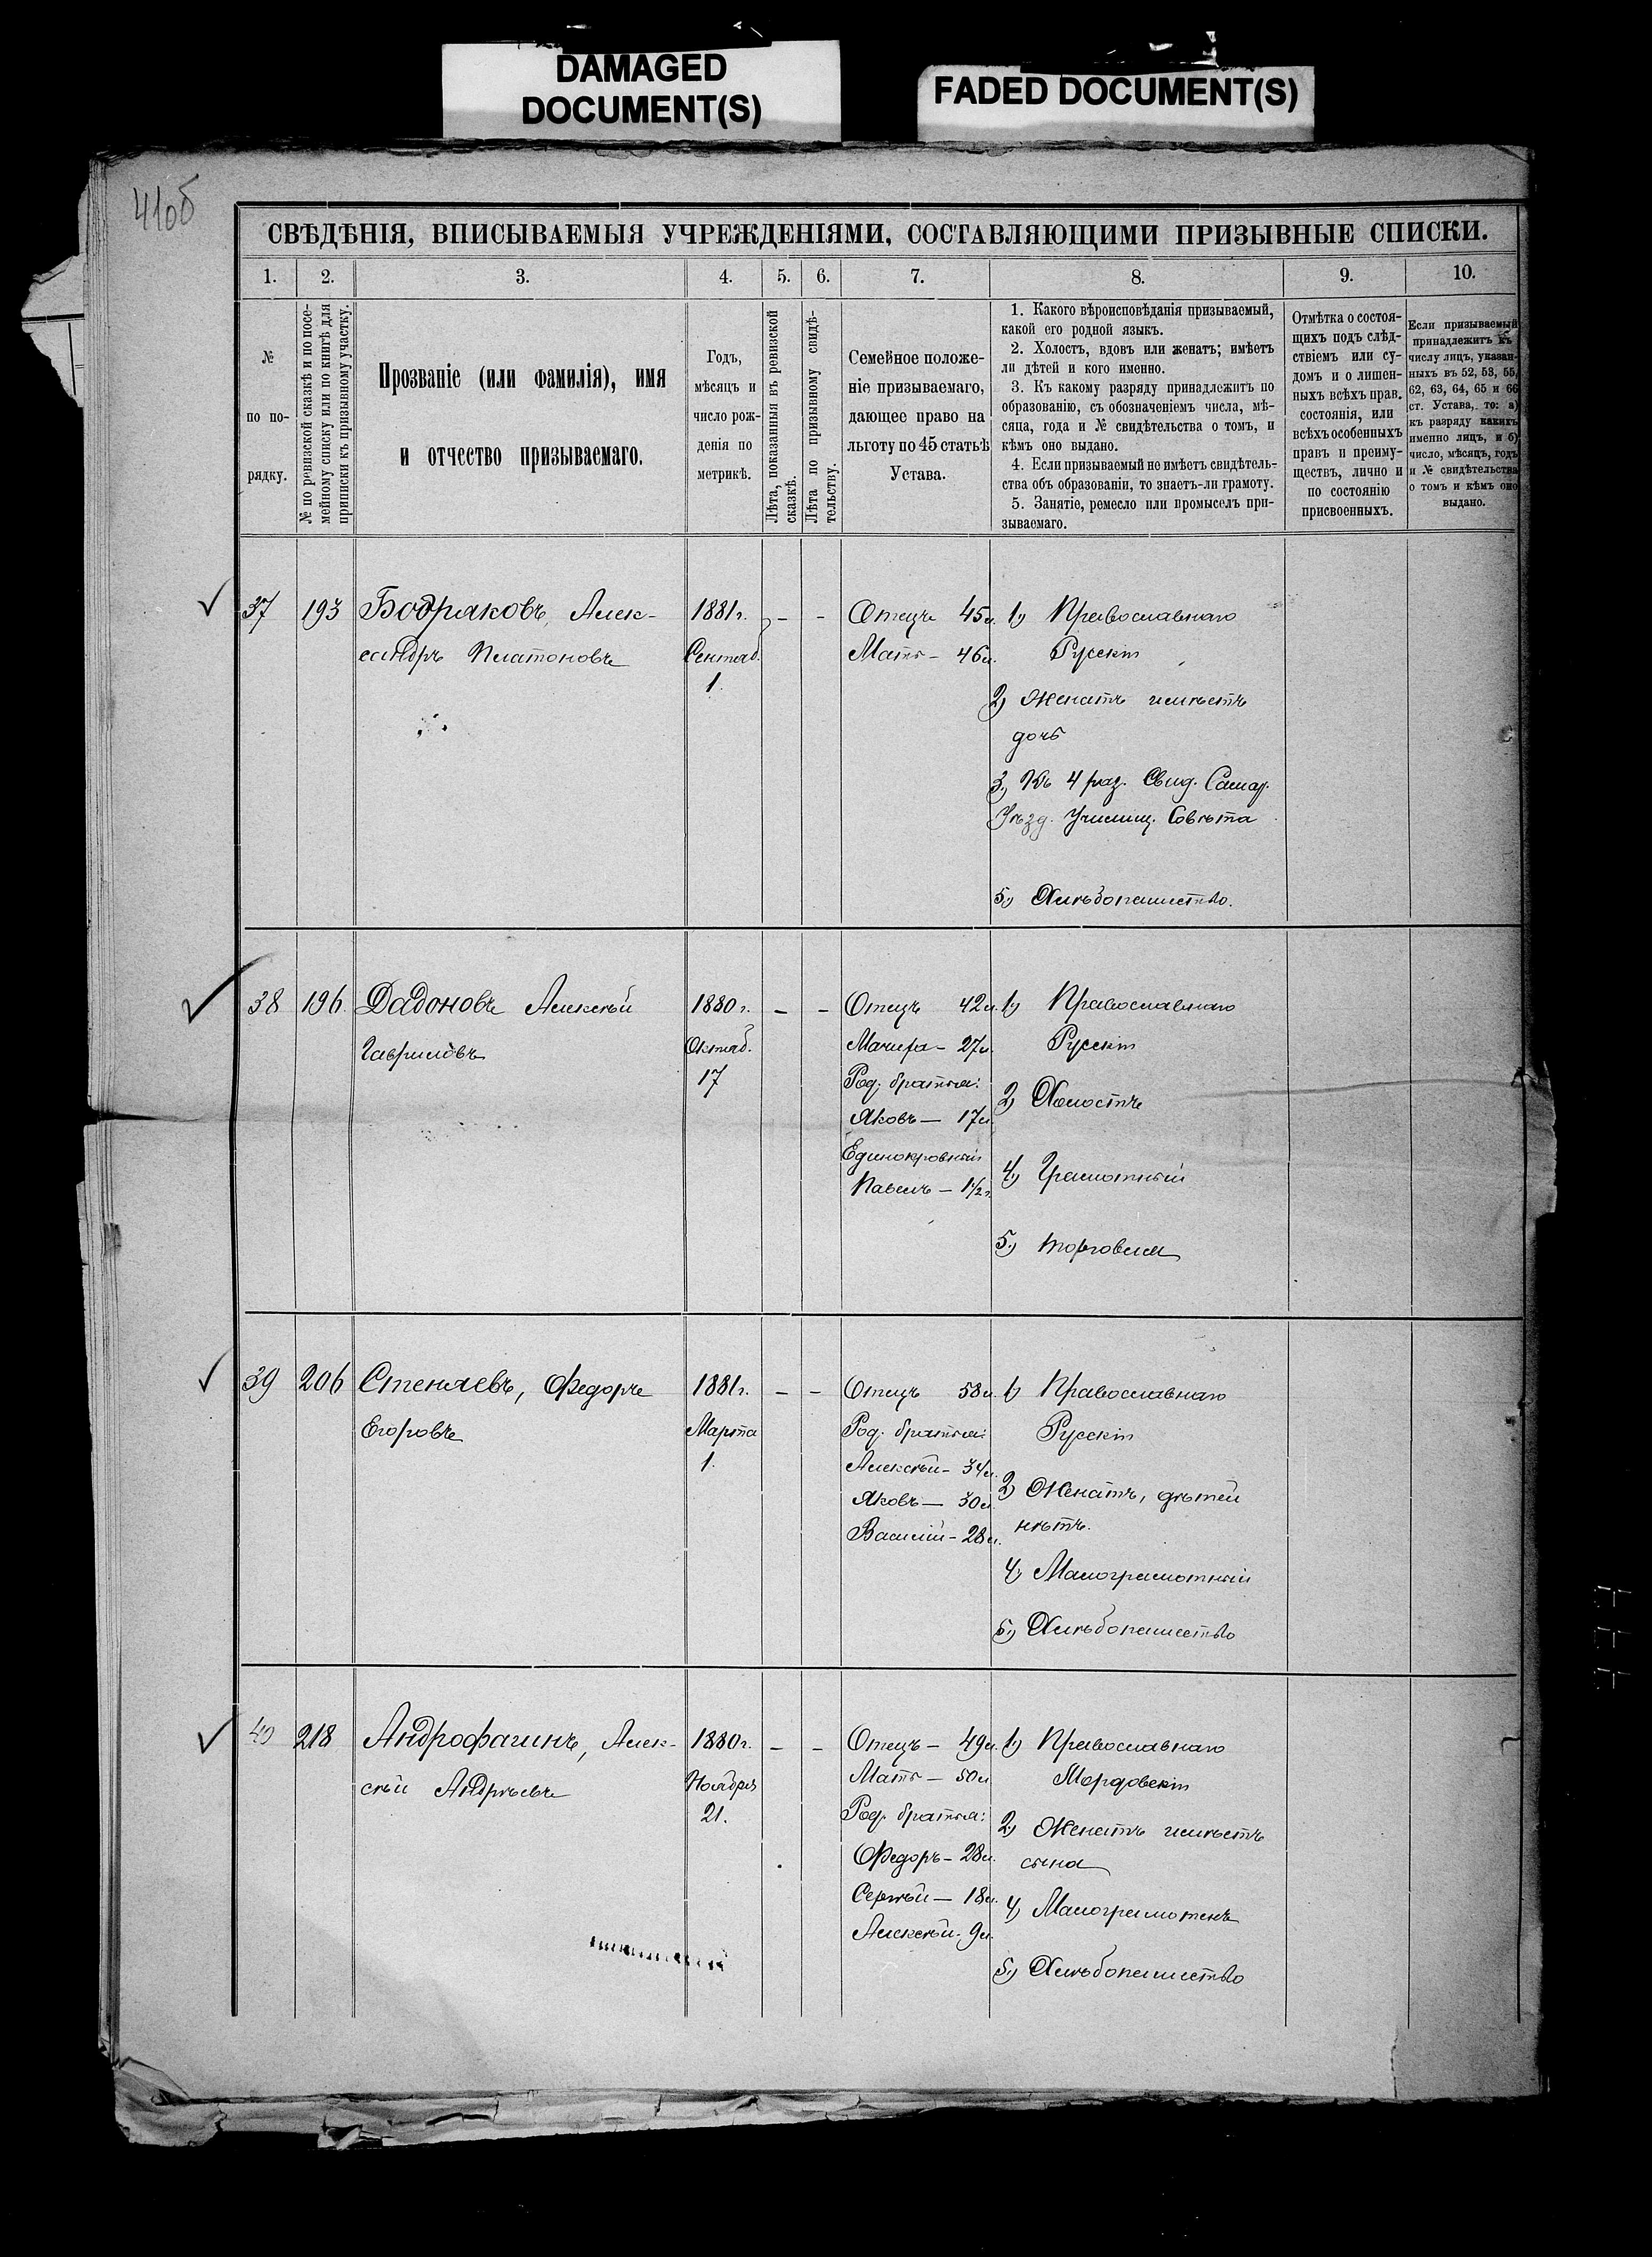 DAMAGED
DOCUMENT(S)
FADED DOCUMENT(S)
41об
СВѢДѢНІЯ, ВПИСЫВАЕМЫЯ УЧРЕЖДЕНІЯМИ, СОСТАВЛЯЮЩИМИ ПРИЗЫВНЫЕ СПИСКИ.
1. 2. 3. 4. 5. 6. 7. 8. 9. 10.
№
по по-
рядку.
№ по ревизской сказкѣ и по посе-
мейному списку или по книгѣ для
приписки къ призывному участку.
Прозваніе (или фамилія), имя
и отчество призываемаго.
Годъ,
мѣсяцъ и
число рож-
денія по
метрикѣ.
Лѣта, показанныя въ ревизской
сказкѣ.
Лѣта по призывному свидѣ-
тельству.
Семейное положе-
ніе призываемаго,
дающее право на
льготу по 45 статьѣ
Устава.
1. Какого вѣроисповѣданія призываемый,
какой его родной языкъ.
2. Холостъ, вдовъ или женатъ; имѣетъ
ли дѣтей и кого именно.
3. Къ какому разряду принадлежитъ по
образованію, съ обозначеніемъ числа, мѣ-
сяца, года и № свидѣтельства о томъ, и
кѣмъ оно выдано.
4. Если призываемый не имѣетъ свидѣтель-
ства объ образованіи, то знаетъ-ли грамоту.
5. Занятіе, ремесло или промыселъ при-
зываемаго.
Отмѣтка о состоя-
щихъ подъ слѣд-
ствіемъ или су-
домъ и о лишен-
ныхъ всѣхъ прав.
состоянія, или
всѣхъ особенныхъ
правъ и преиму-
ществъ, лично и
по состоянію
присвоенныхъ.
Если призываемый
принадлежитъ къ
числу лицъ, указан-
ныхъ въ 52, 53, 55,
62, 63, 64, 65 и 66
ст. Устава, то: а)
къ разряду какихъ
именно лицъ, и б)
число, мѣсяцъ, годъ
и № свидѣтельства
о томъ и кѣмъ оно
выдано.
37 193 Бодряковъ, Алек-
сандръ Платоновъ
1881 г.
Сентяб.
1.
- -
Отецъ 45 л.
Мать - 46 л.
1) Православнаго
Русскій
2) Женатъ имѣетъ
дочь
3) Къ 4 раз. Свид. Самар.
Уѣзд. Училищ. Совѣта
5) Хлѣбопашество.
38 196 Дадоновъ Алексѣй
Гавриловъ
1880 г.
Октяб.
17
- -
Отецъ 42 л.
Мачиха - 27 л.
Род. братья:
Яковъ — 17 л.
Единокровный
Павелъ — 1½ г.
1) Православнаго
Русскій
2) Холостъ
4) Грамотный
5) Торговля
39 206 Стеняевъ, Федоръ
Егоровъ
1881 г.
Марта
1.
- -
Отецъ 58 л.
Род. братья:
Алексѣй - 34 л.
Яковъ — 30 л.
Василій - 28 л.
1) Православнаго
Русскій
2) Женатъ, дѣтей
нѣтъ.
4) Малограмотный
5) Хлѣбопашество
40 218 Андрофагинъ, Алек-
сѣй Андрѣевъ
1880 г.
Ноября
21.
- -
Отецъ — 49 л.
Мать — 50 л.
Род. братья:
Федоръ - 28 л.
Сергѣй — 18 л.
Алексѣй - 9 л.
1) Православнаго
Мордовскій
2) Женатъ имѣетъ
сына
4) Малограмотенъ
5) Хлѣбопашество